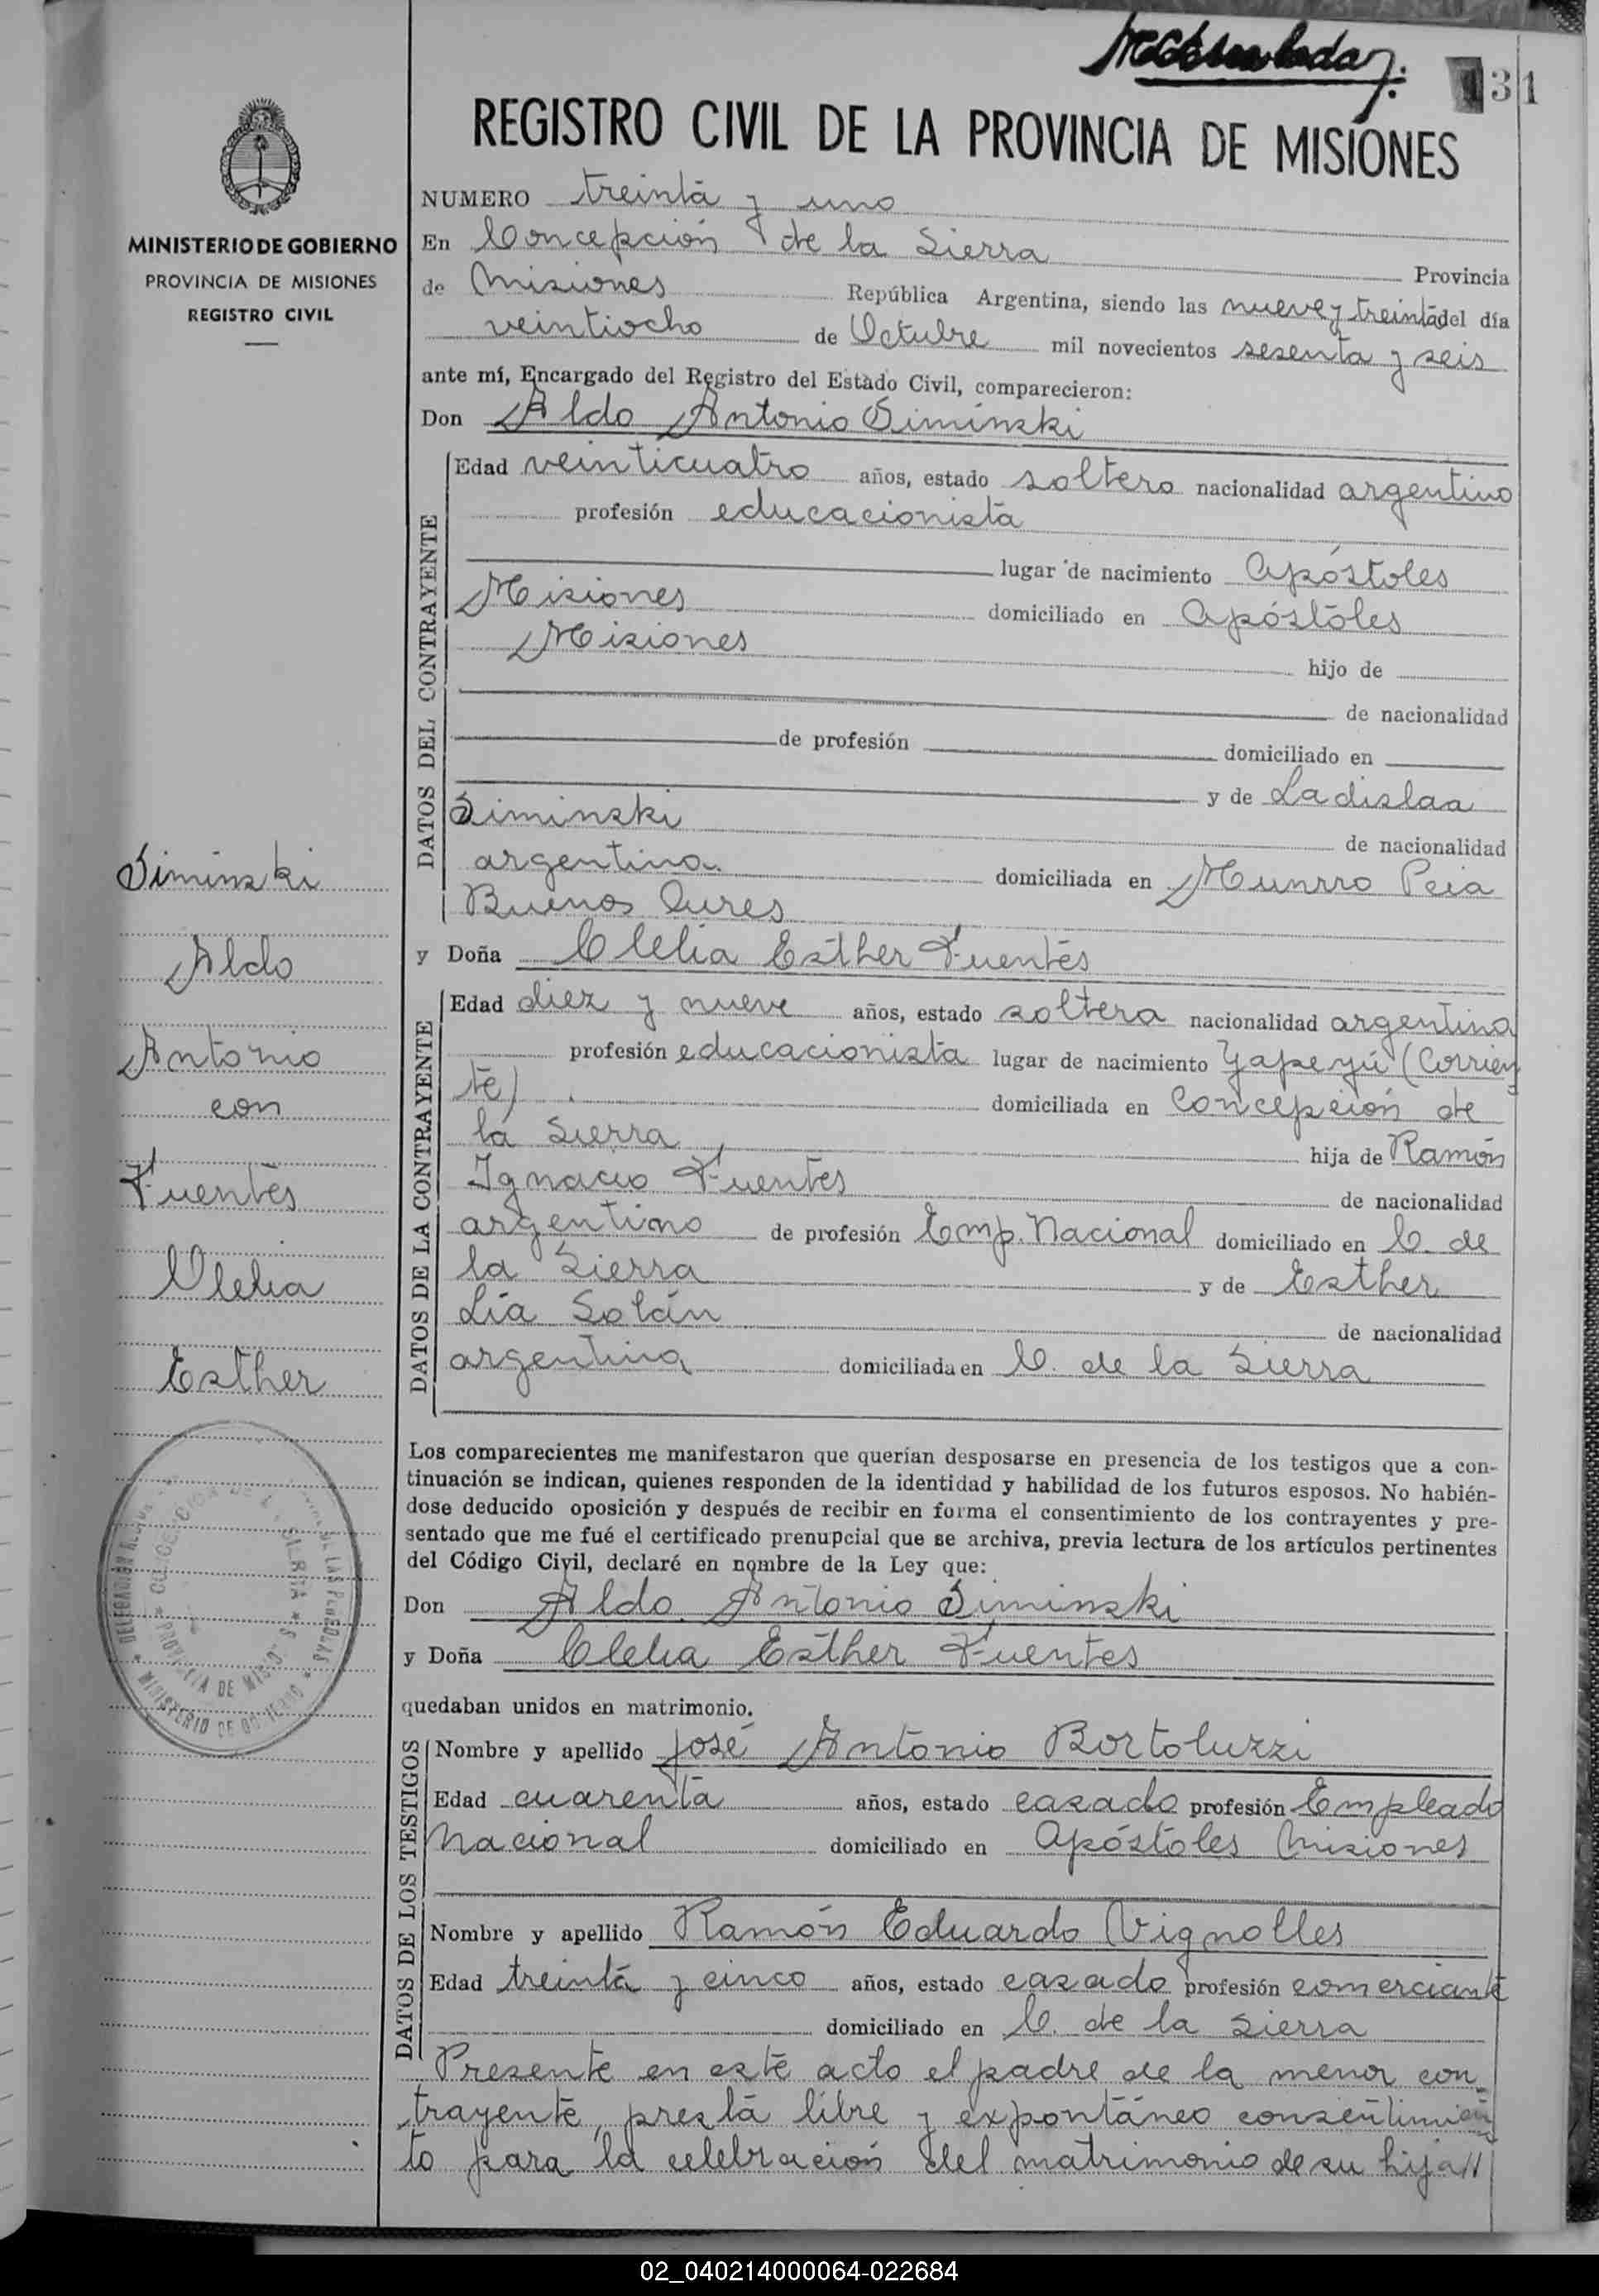 31
REGISTRO CIVIL DE LA PROVINCIA DE MISIONES
MINISTERIO DE GOBIERNO
PROVINCIA DE MISIONES
REGISTRO CIVIL
NUMERO treinta y uno
En Concepción de la Sierra Provincia
de Misiones República Argentina, siendo las nueve y treinta del día
veintiocho de Octubre mil novecientos sesenta y seis
ante mí, Encargado del Registro del Estado Civil, comparecieron:
Don Aldo Antonio Siminski
DATOS DEL CONTRAYENTE
Edad veinticuatro años, estado soltero nacionalidad argentino
profesión educacionista
lugar de nacimiento Apóstoles
Misiones domiciliado en Apóstoles
Misiones hijo de
de nacionalidad
de profesión domiciliado en
y de Ladislaa
Siminski de nacionalidad
argentina domiciliada en Munro Pcia
Buenos Aires
y Doña Clelia Esther Fuentes
DATOS DE LA CONTRAYENTE
Edad diez y nueve años, estado soltera nacionalidad argentina
profesión educacionista lugar de nacimiento Yapeyú (Corrien
te) domiciliada en Concepción de
la Sierra hija de Ramón
Ignacio Fuentes de nacionalidad
argentino de profesión Emp. Nacional domiciliado en C. de
la Sierra y de Esther
Lía Solán de nacionalidad
argentina domiciliada en C. de la Sierra
Siminski
Aldo
Antonio
con
Fuentes
Clelia
Esther
Los comparecientes me manifestaron que querían desposarse en presencia de los testigos que a con-
tinuación se indican, quienes responden de la identidad y habilidad de los futuros esposos. No habién-
dose deducido oposición y después de recibir en forma el consentimiento de los contrayentes y pre-
sentado que me fué el certificado prenupcial que se archiva, previa lectura de los artículos pertinentes
del Código Civil, declaré en nombre de la Ley que:
Don Aldo Antonio Siminski
y Doña Clelia Esther Fuentes
quedaban unidos en matrimonio.
MINISTERIO DE GOBIERNO
DATOS DE LOS TESTIGOS
Nombre y apellido José Antonio Bortoluzzi
Edad cuarenta años, estado casado profesión Empleado
Nacional domiciliado en Apóstoles Misiones
Nombre y apellido Ramón Eduardo Vignolles
Edad treinta y cinco años, estado casado profesión comerciante
domiciliado en C. de la Sierra
Presente en este acto el padre de la menor con-
trayente, presta libre y expontáneo consentimien
to para la celebración del matrimonio de su hija//
02_040214000064-022684